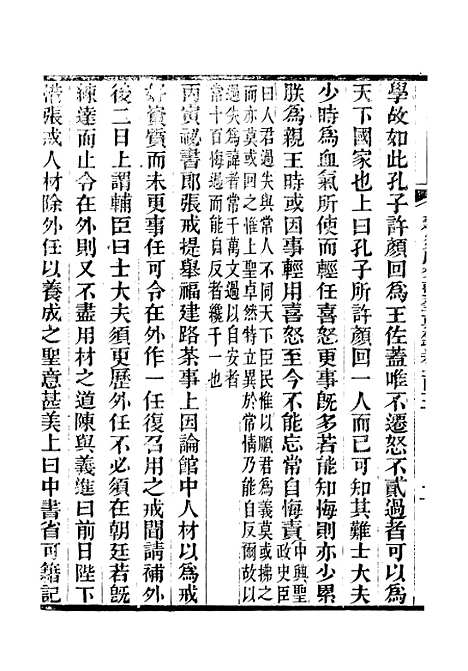 學故如此孔子許顏回為王佐蓋唯不遷怒不貳過者可以為
天下國家也上曰孔子所許顏回一人而已可知其難士大夫
少時為血氣所使而輕任喜怒更事既多若能知悔則亦少累
朕為親王時或因事輕用喜怒至今不能忘常自悔責中興聖政史臣
曰人君過失與常人不同天下臣民惟以順君為義莫或拂之
而亦莫或回之惟上聖卓然特立異於常情乃能自反爾故以
過失為諱者常千萬文過以自安者
常十百悔過而能自反者纔千一也
丙寅祕書郎張戒提舉福建路茶事上因論館中人材以為戒
好資質而未更事任可令在外作一任復召用之戒聞請補外
後二日上謂輔臣曰士大夫須更歷外任不必須在朝廷若既
練達而止令在外則又不盡用材之道陳與義進曰前日陛下
惜張戒人材除外任以養成之聖意甚美上曰中書省可籍記